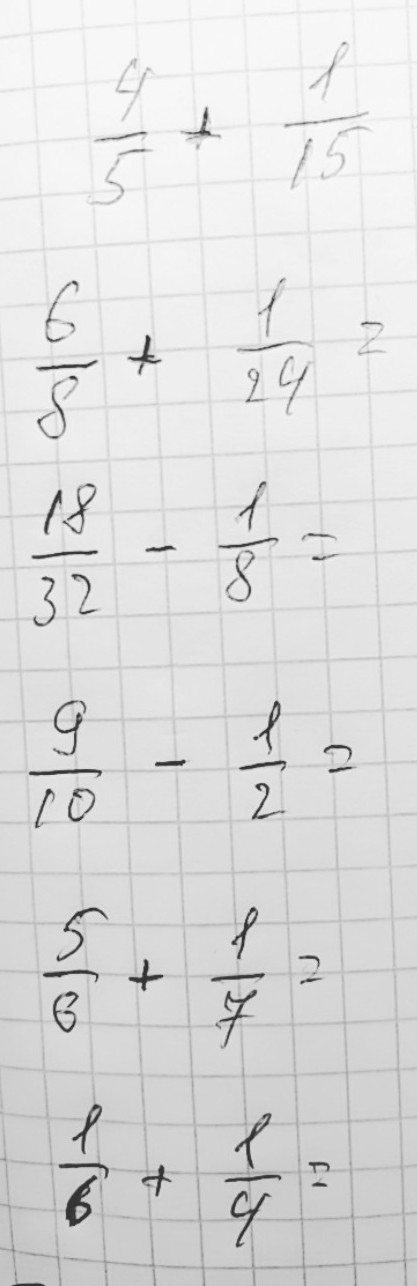 4/5 + 1/15
6/8 + 1/24 =
18/32 - 1/8 =
9/10 - 1/2 =
5/6 + 1/7 =
1/6 + 1/4 =